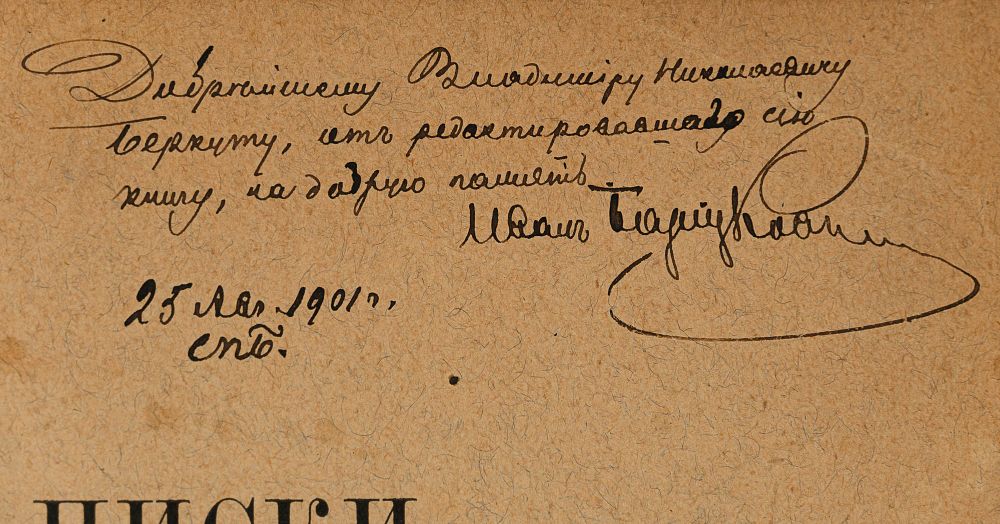 Добрѣйшему Владиміру Николаевичу
Беркуту, отъ редактировавшаго сію
книгу, на добрую память
Иванъ
25 Авг 1901 г.
СПБ.
ПИСКИ